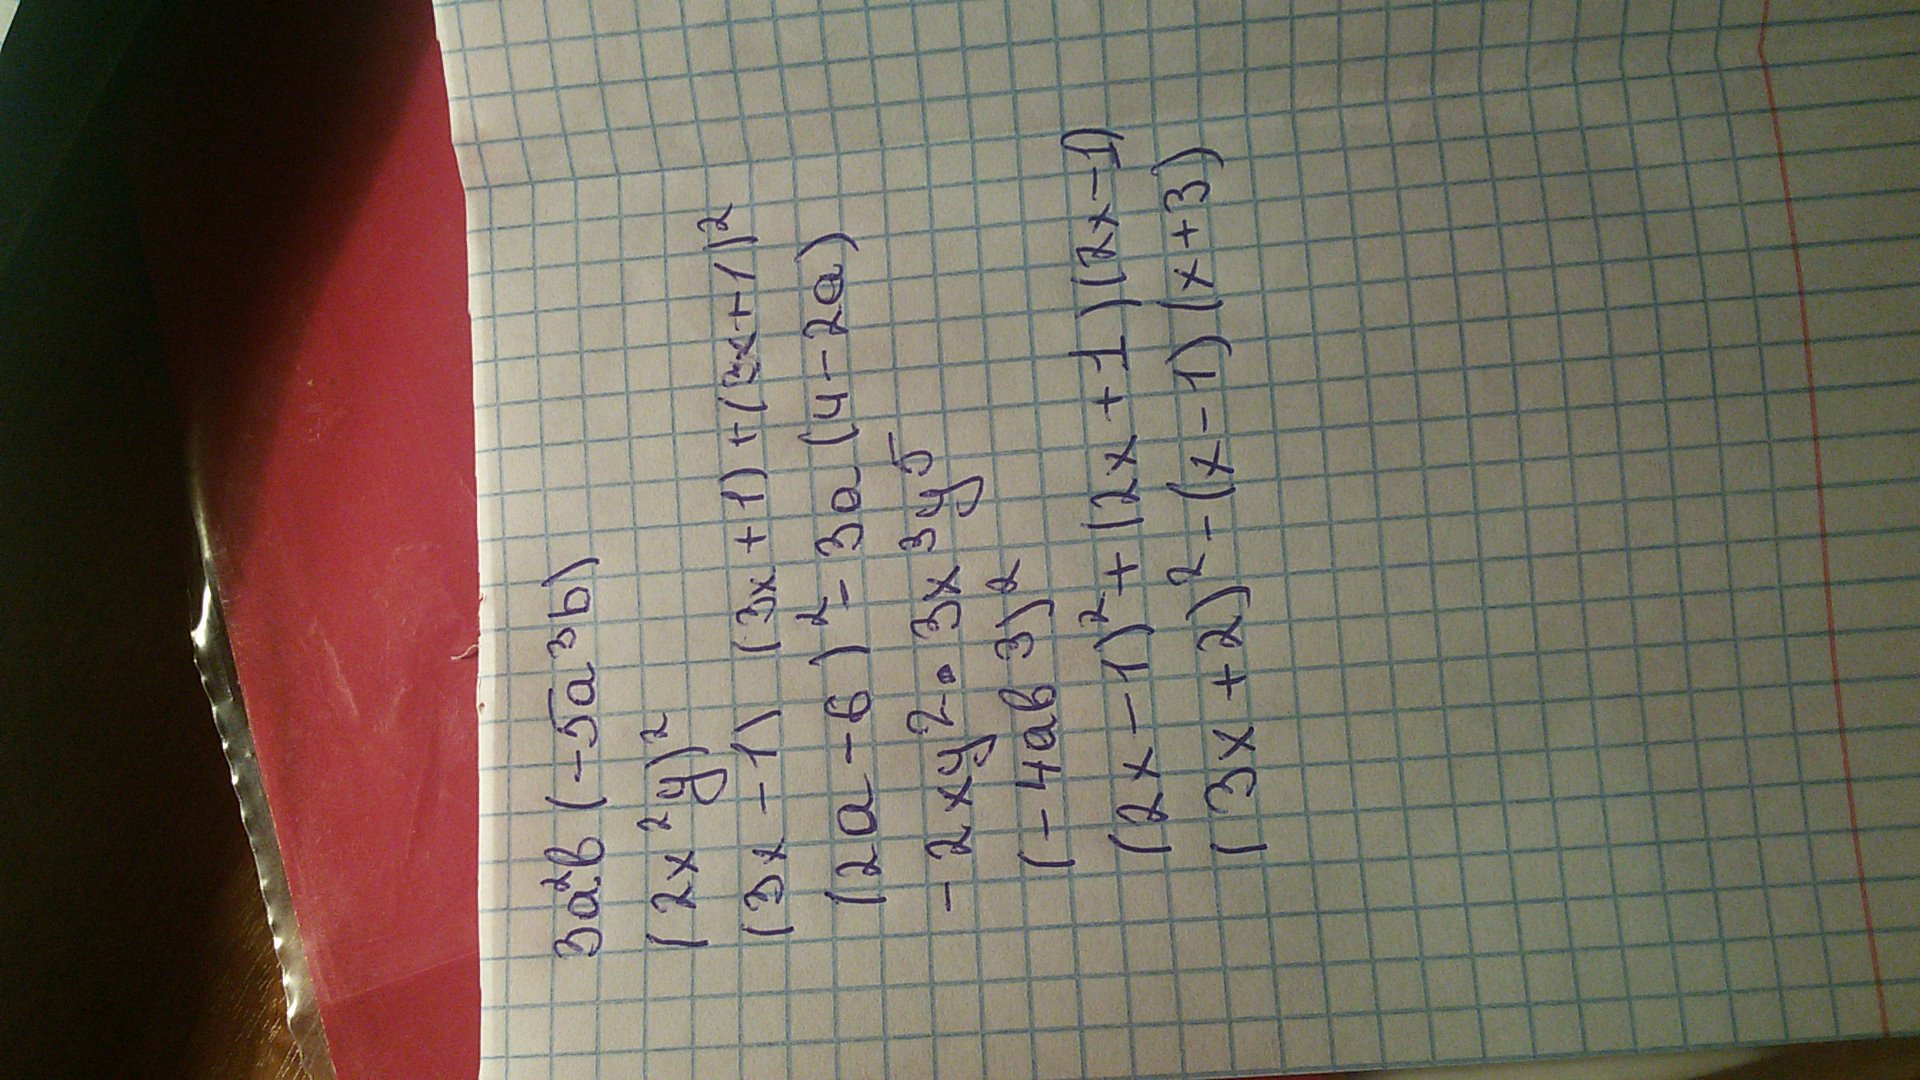 3a²b(-5a³b)
(2x²y)²
(3x-1) (3x+1)+(3x+1)²
(2a-6)²-3a(4-2a)
-2xy²·3x³y⁵
(-4ab3)²
(2x-1)²+(2x+1)(2x-1)
(3x+2)²-(x-1)(x+3)